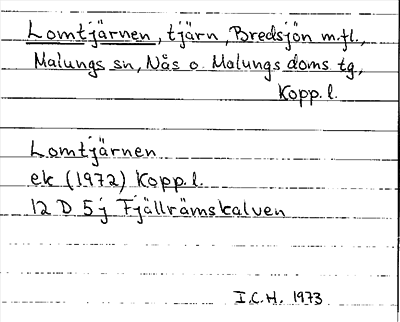 Lomtjärnen, tjärn, Bredsjön m.fl.,
Malungs sn, Nås o. Malungs doms. tg,
Kopp. l.
Lomtjärnen
ek (1972) Kopp. l.
12 D 5j Fjällrämskalven
I.C.H. 1973